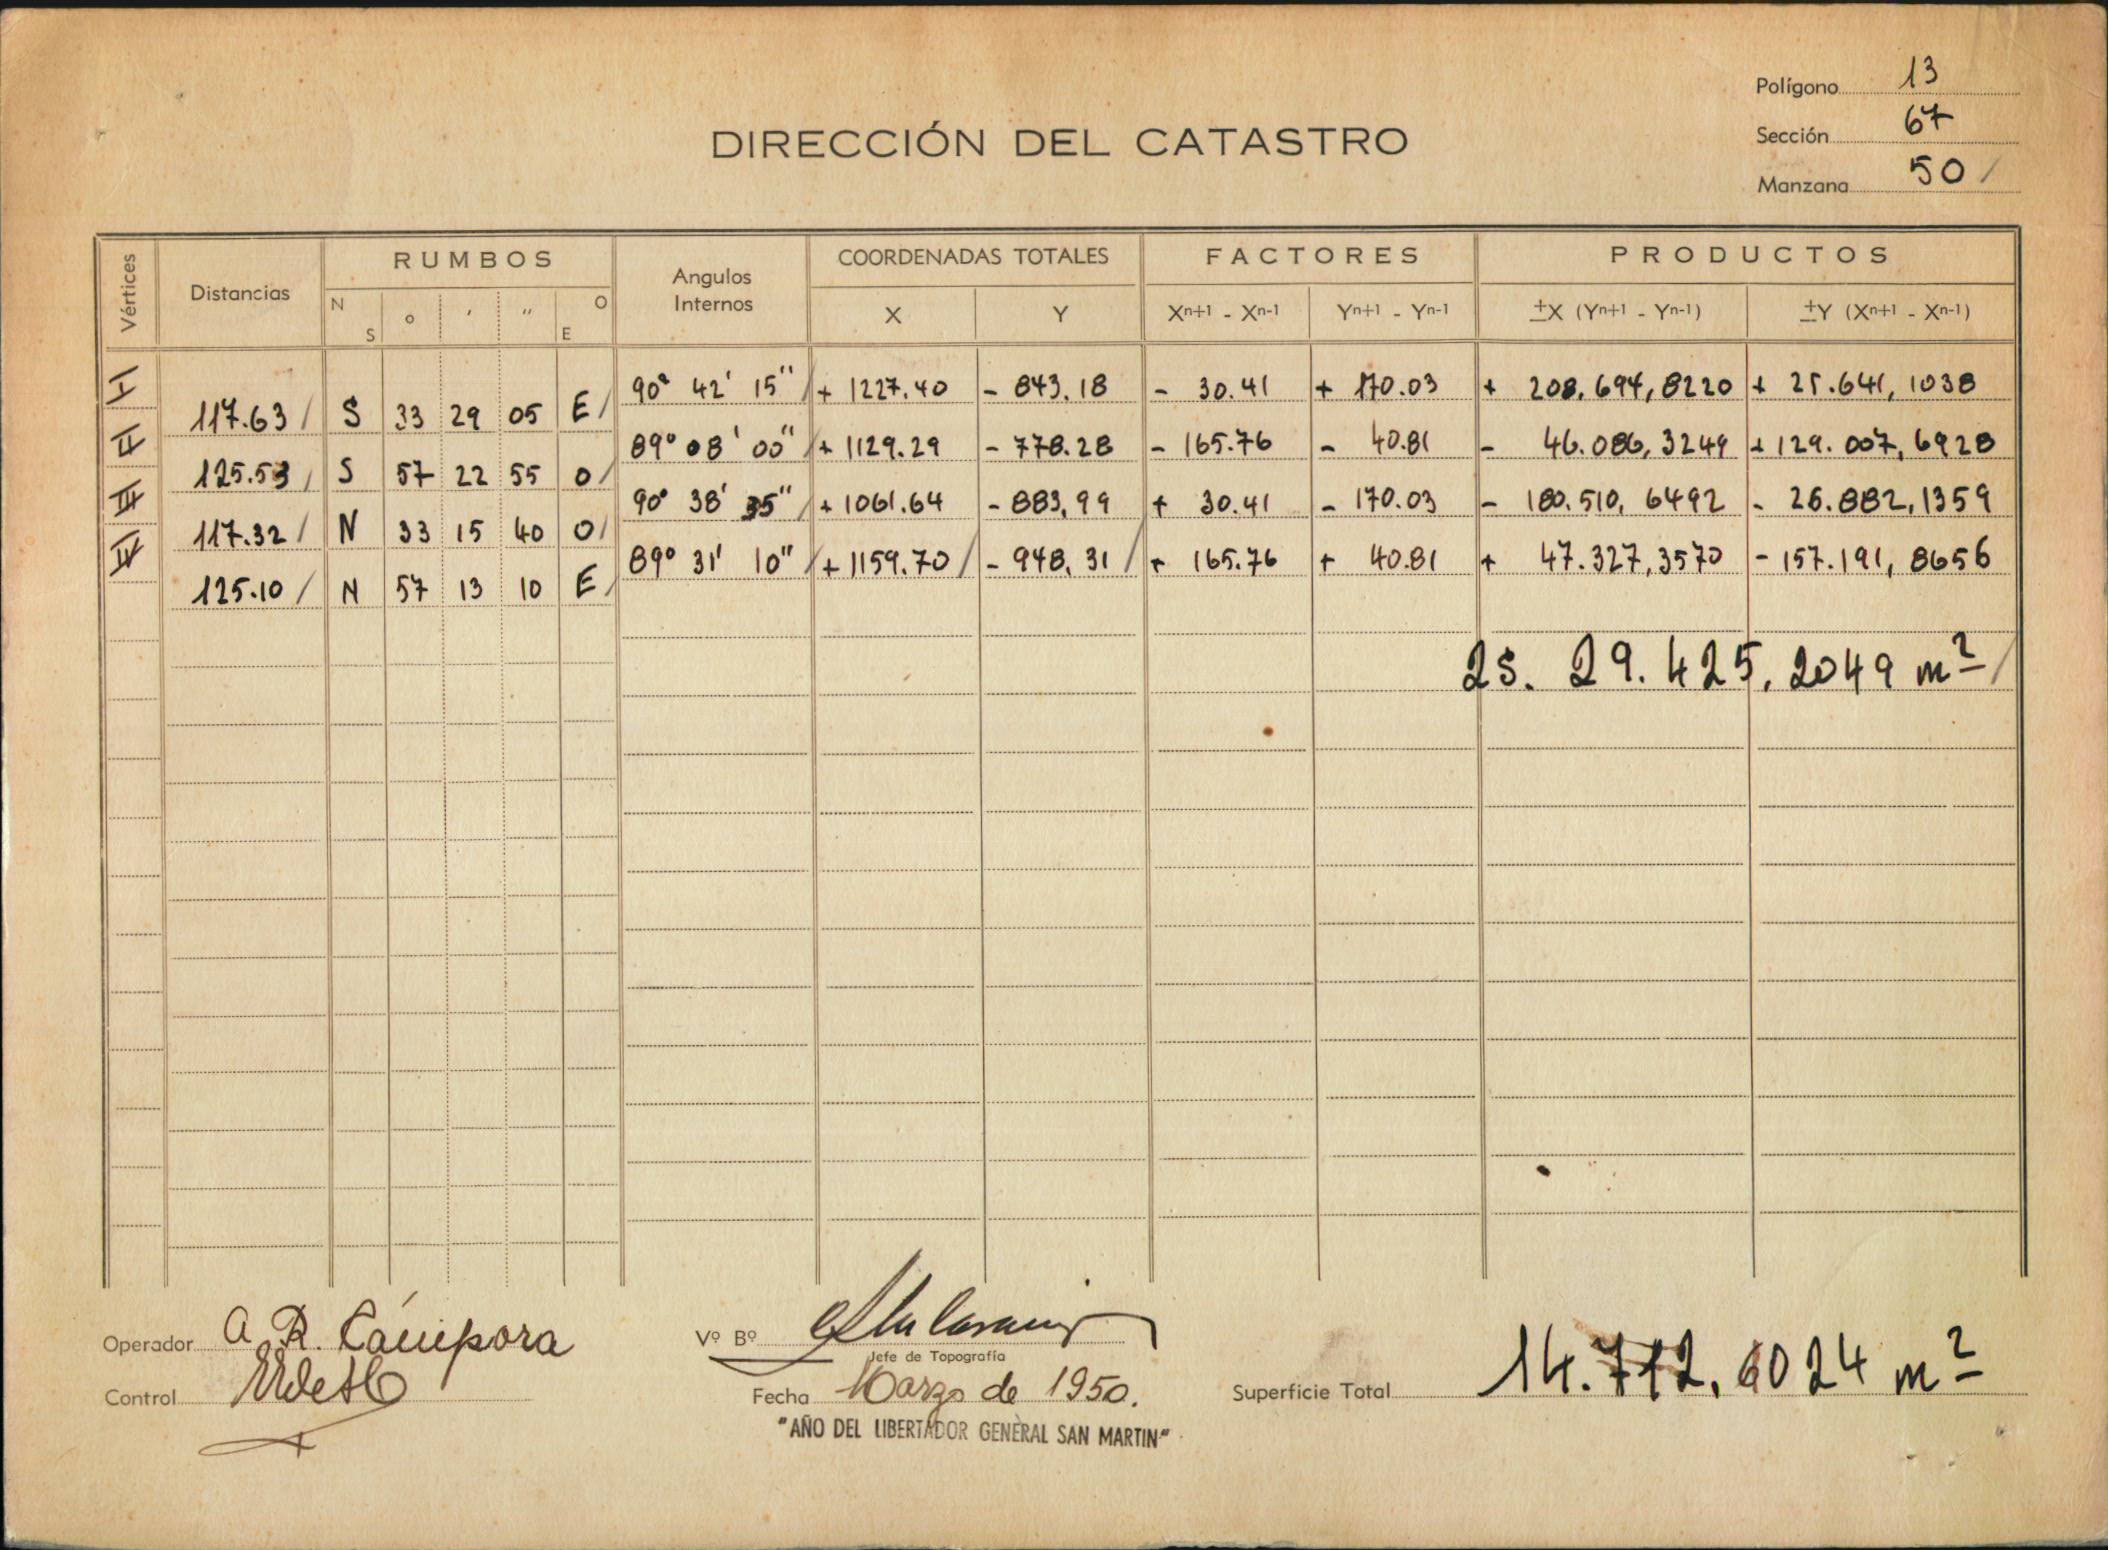 Polígono 13
Sección 67
Manzana 50 /
DIRECCIÓN DEL CATASTRO
Vértices Distancias RUMBOS Angulos Internos COORDENADAS TOTALES FACTORES PRODUCTOS
N S ° ' " O E X Y Xn+1 - Xn-1 Yn+1 - Yn-1 ±X (Yn+1 - Yn-1) ±Y (Xn+1 - Xn-1)
I 90° 42' 15" / + 1227.40 - 843.18 - 30.41 + 170.03 + 208.694,8220 + 25.641,1038
117.63 / S 33 29 05 E /
II 89° 08' 00" / + 1129.29 - 778.28 - 165.76 - 40.81 - 46.086,3249 + 129.007,6928
125.53 / S 57 22 55 O /
III 90° 38' 35" / + 1061.64 - 883,99 + 30.41 - 170.03 - 180.510,6492 - 26.882,1359
117.32 / N 33 15 40 O /
IV 89° 31' 10" / + 1159.70 / - 948,31 / + 165.76 + 40.81 + 47.327,3570 - 157.191,8656
125.10 / N 57 13 10 E /
2S. 29.425,2049 m² /
Operador A R. Cámpora
Vº Bº
Jefe de Topografía
Control
Fecha Marzo de 1950.
Superficie Total 14.712,6024 m²
"AÑO DEL LIBERTADOR GENERAL SAN MARTIN"